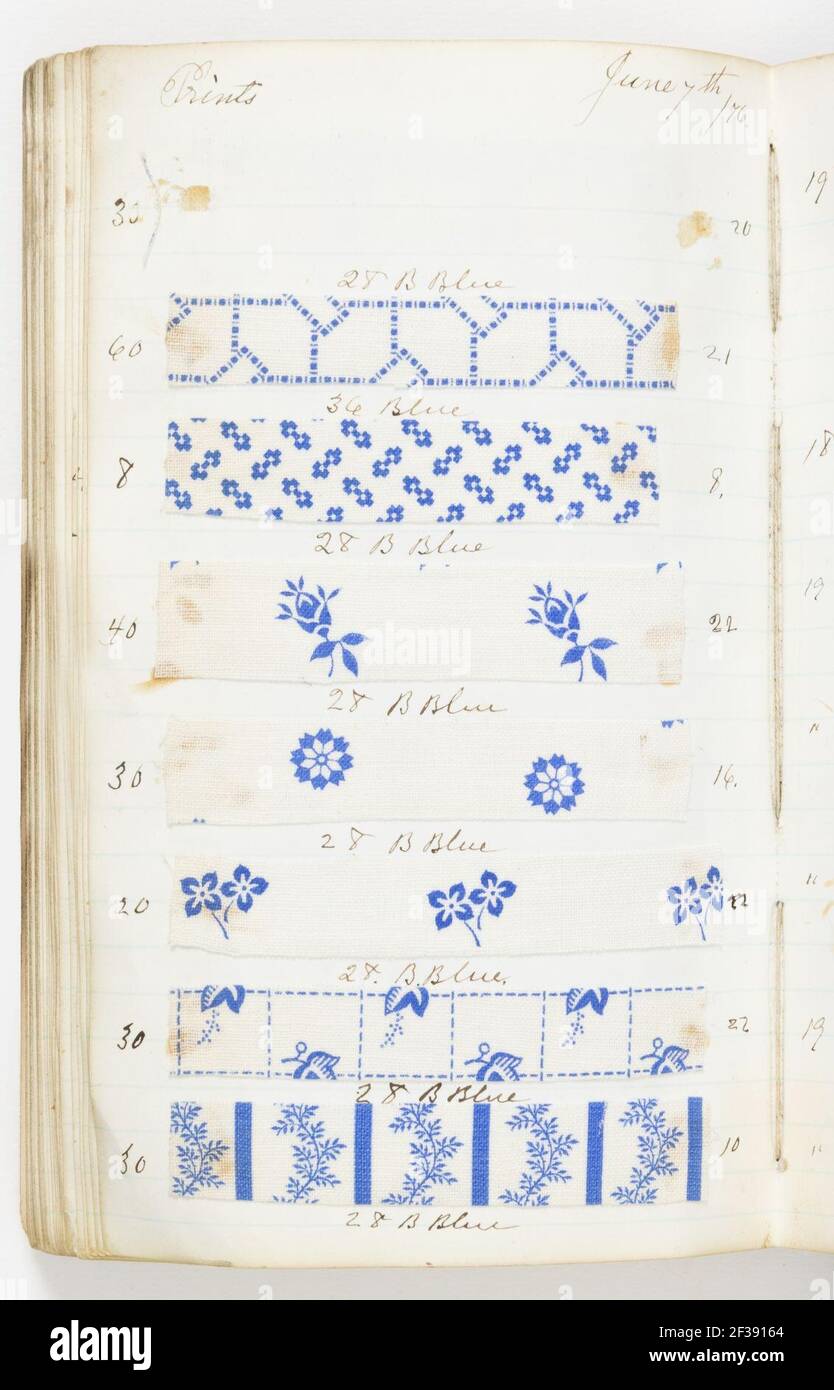 Prints June 7th /76
30 20 19
28 B Blue
60 21
36 Blue
8 8. 18
28 B Blue
40 22 19
28 B Blue
30 16. "
28 B Blue
20 22 "
28. B. Blue.
30 22 19
28 B Blue
30 10 "
28 B Blue
alamy
alamy
Image ID: 2F39164
www.alamy.com